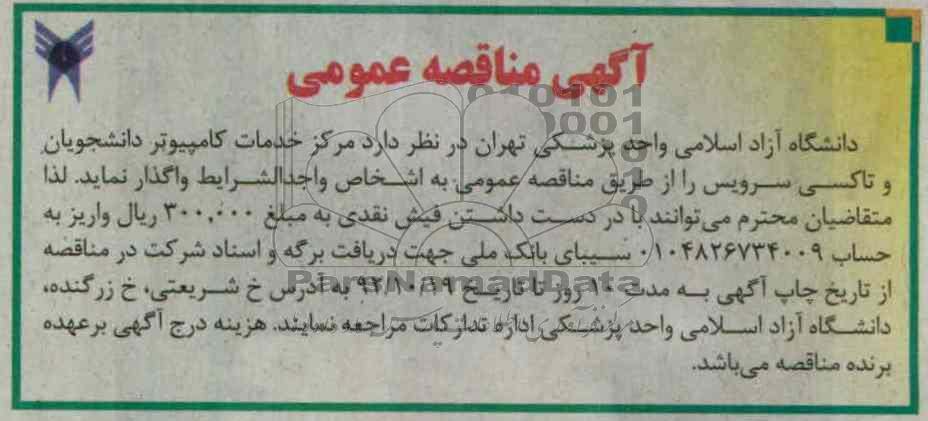 آگهی مناقصه عمومی
دانشگاه آزاد اسلامی واحد پزشکی تهران در نظر دارد مرکز خدمات کامپیوتر دانشجویان
و تاکسی سرویس را از طریق مناقصه عمومی به اشخاص واجدالشرایط واگذار نماید. لذا
متقاضیان محترم می‌توانند با در دست داشتن فیش نقدی به مبلغ ۳۰۰,۰۰۰ ریال واریز به
حساب ۰۱۰۴۸۲۶۷۳۴۰۰۹ سیبای بانک ملی جهت دریافت برگه و اسناد شرکت در مناقصه
از تاریخ چاپ آگهی به مدت ۱۰ روز تا تاریخ ۹۲/۱۰/۱۹ به آدرس خ شریعتی، خ زرگنده،
دانشگاه آزاد اسلامی واحد پزشکی اداره تدارکات مراجعه نمایند. هزینه درج آگهی برعهده
برنده مناقصه می‌باشد.
010101
0001
ParsNamadData